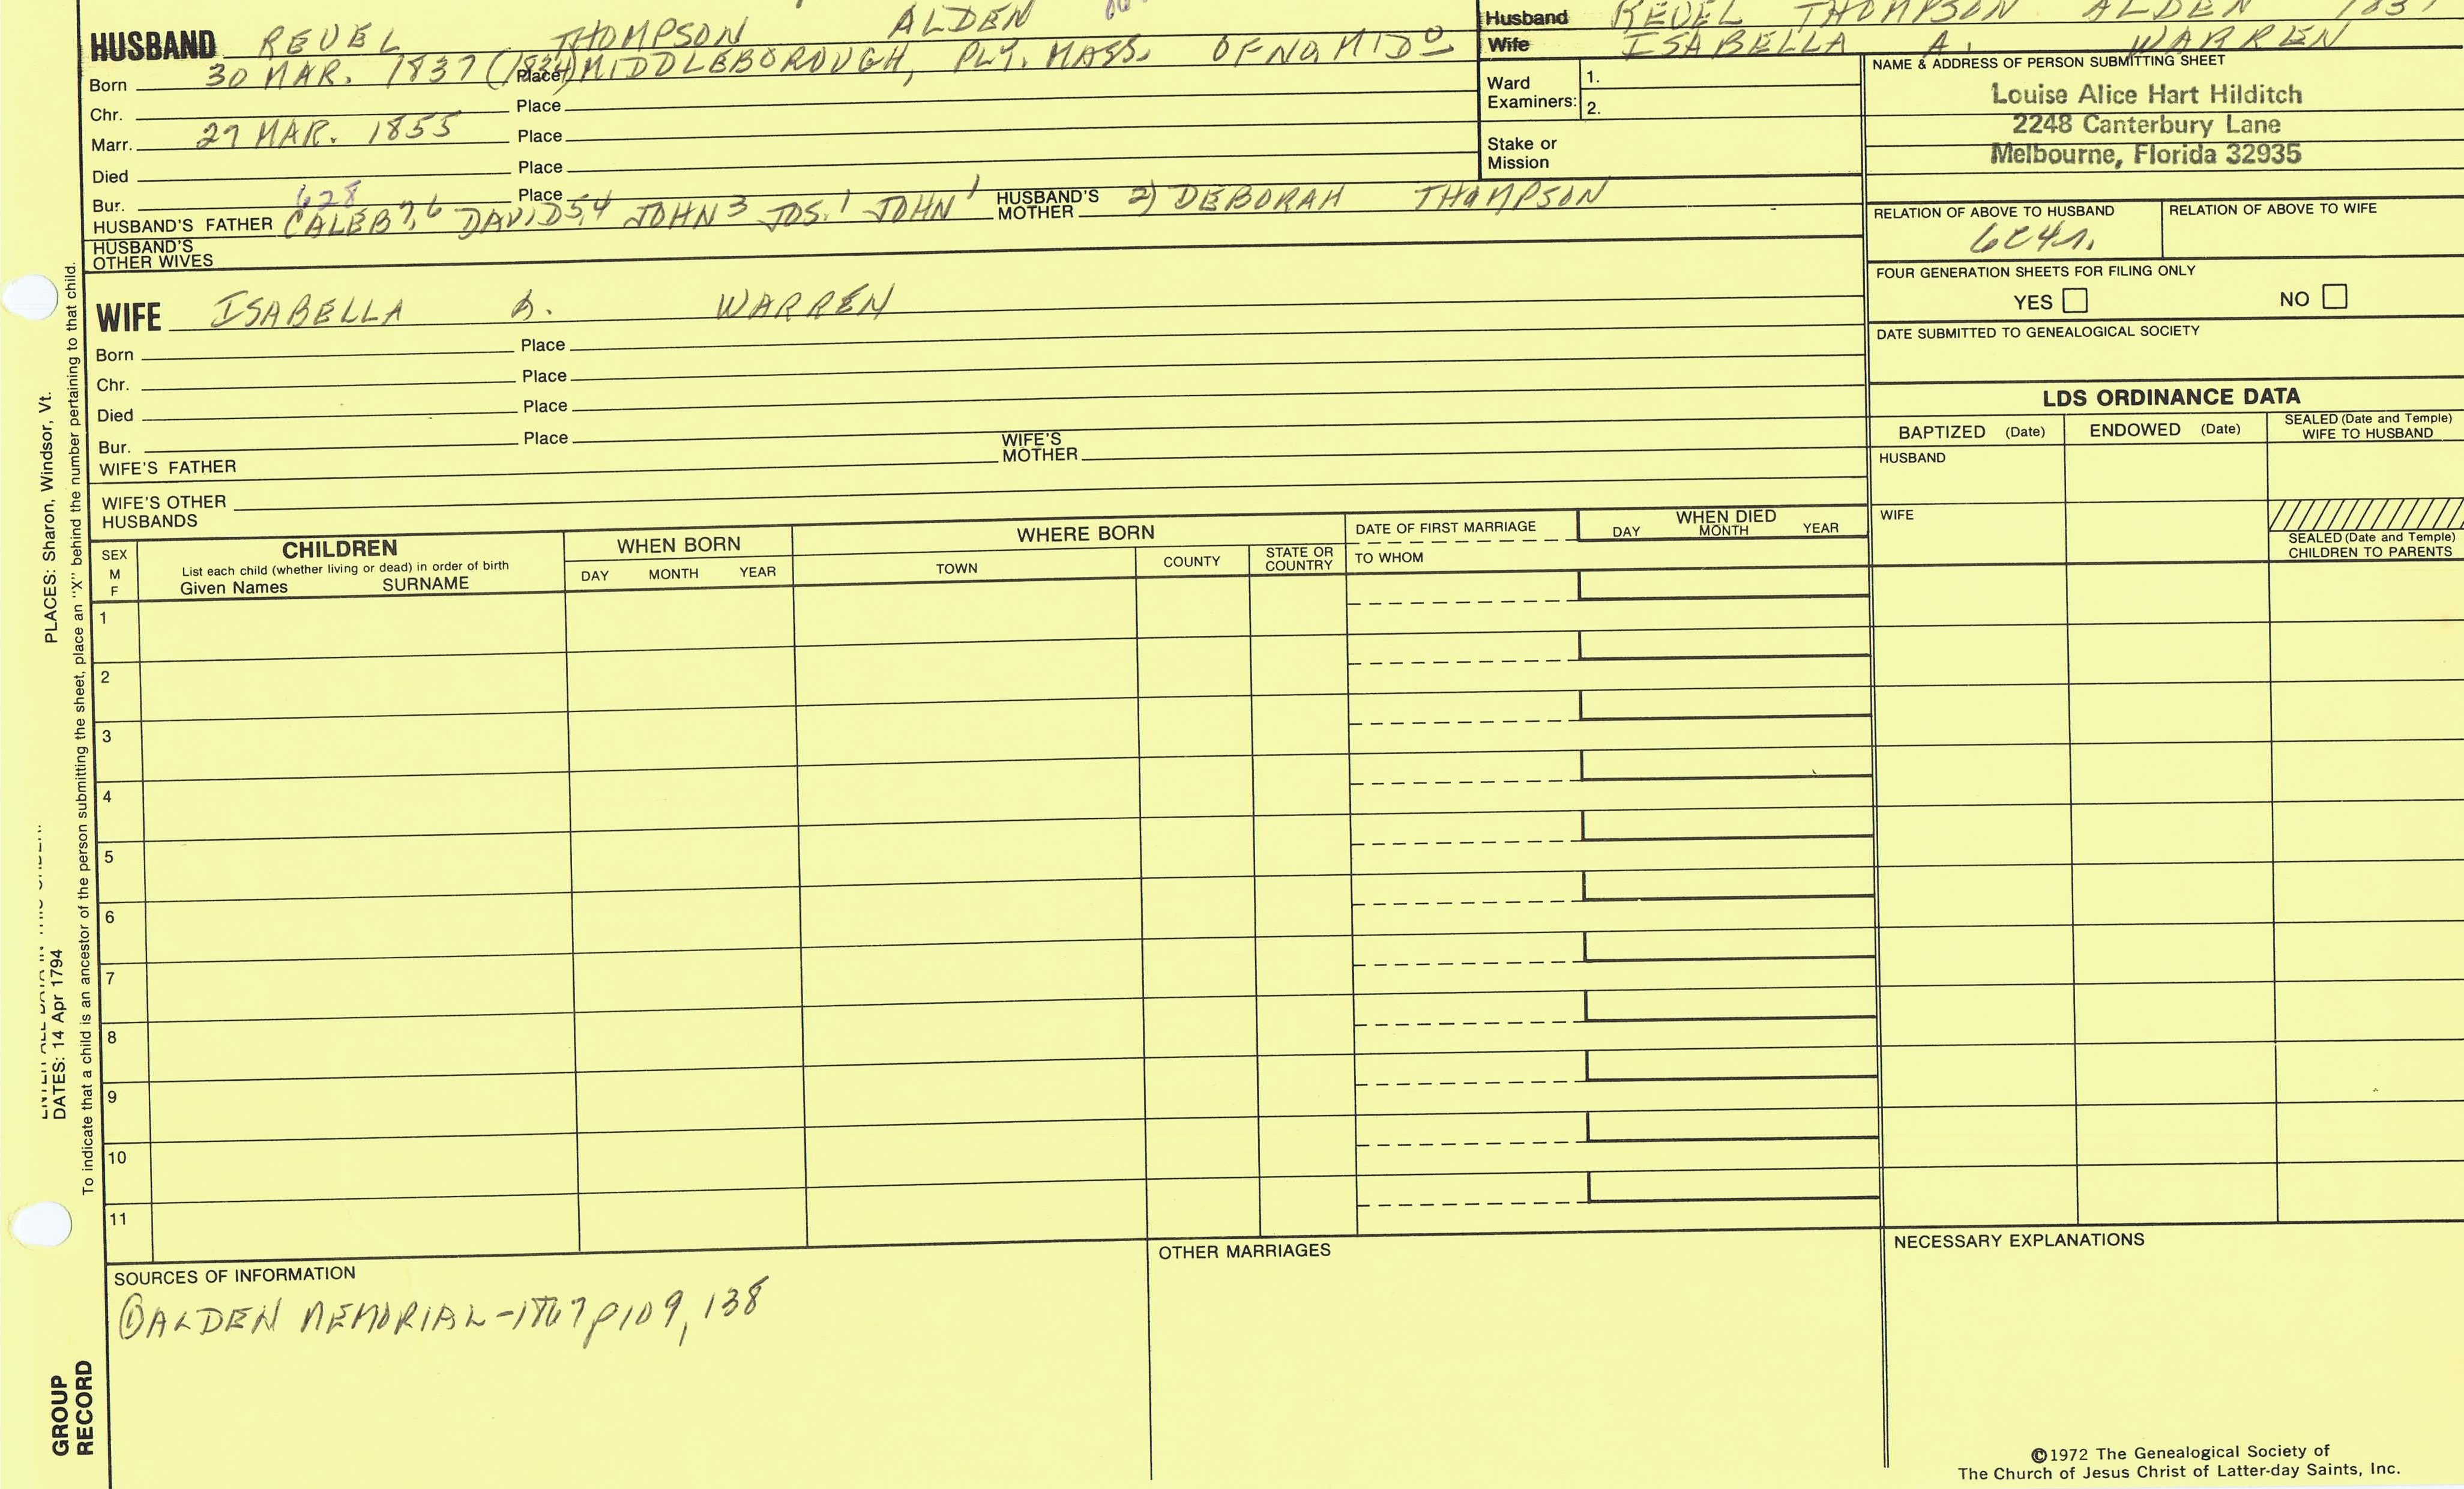 HUSBAND REUEL THOMPSON ALDEN
Born 30 MAR. 1837 (1834) Place MIDDLEBOROUGH, PLY. MASS. OF NO. MIDO
Chr. Place
Marr. 27 MAR. 1855 Place
Died Place
Bur. Place
628
HUSBAND'S FATHER CALEB 7,6 DAVID 5,4 JOHN 3 JOS. 1 JOHN 1 HUSBAND'S MOTHER 2) DEBORAH THOMPSON
HUSBAND'S
OTHER WIVES
WIFE ISABELLA A. WARREN
Born Place
Chr. Place
Died Place
Bur. Place
WIFE'S FATHER WIFE'S MOTHER
WIFE'S OTHER
HUSBANDS
Husband REUEL THOMPSON ALDEN 1837
Wife ISABELLA A. WARREN
Ward
Examiners:
1.
2.
Stake or
Mission
NAME & ADDRESS OF PERSON SUBMITTING SHEET
Louise Alice Hart Hilditch
2248 Canterbury Lane
Melbourne, Florida 32935
RELATION OF ABOVE TO HUSBAND RELATION OF ABOVE TO WIFE
6C4R.
FOUR GENERATION SHEETS FOR FILING ONLY
YES NO
DATE SUBMITTED TO GENEALOGICAL SOCIETY
LDS ORDINANCE DATA
BAPTIZED (Date) ENDOWED (Date) SEALED (Date and Temple)
WIFE TO HUSBAND
HUSBAND
WIFE
SEALED (Date and Temple)
CHILDREN TO PARENTS
SEX
M
F
CHILDREN
List each child (whether living or dead) in order of birth
Given Names SURNAME
WHEN BORN
DAY MONTH YEAR
WHERE BORN
TOWN COUNTY STATE OR
COUNTRY
DATE OF FIRST MARRIAGE
TO WHOM
WHEN DIED
DAY MONTH YEAR
1
2
3
4
5
6
7
8
9
10
11
SOURCES OF INFORMATION
① ALDEN MEMORIAL - 1867 p109, 138
OTHER MARRIAGES
NECESSARY EXPLANATIONS
©1972 The Genealogical Society of
The Church of Jesus Christ of Latter-day Saints, Inc.
PLACES: Sharon, Windsor, Vt.
DATES: 14 Apr 1794
To indicate that a child is an ancestor of the person submitting the sheet, place an "X" behind the number pertaining to that child.
GROUP
RECORD